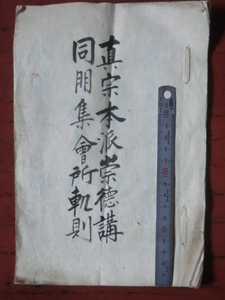 真宗本派崇德講
同朋集會所軌則